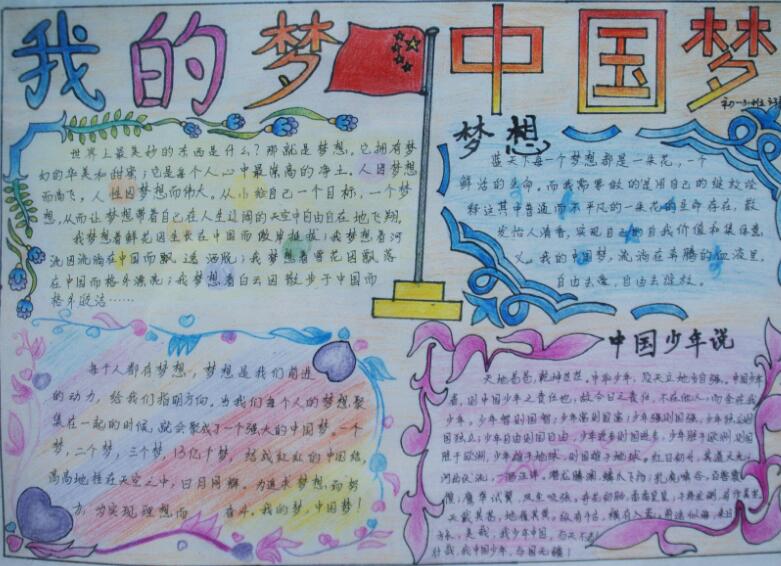 我的梦 中国梦
世界上最美妙的东西是什么?那就是梦想,它拥有梦
幻的华美和甜蜜;它是每个人心中最崇高的净土,人因梦想
而高飞,人性因梦想而伟大,从小给自己一个目标,一个梦
想,从而让梦想带着自己在人生辽阔的天空中自由自在地飞翔,
我梦想着鲜花因生长在中国而傲岸挺拔;我梦想着河
流因流淌在中国而飘逸洒脱;我梦想着雪花因飘落
在中国而格外漂亮;我梦想着白云因散步于中国而
格外皎洁……
梦想
蓝天下每一个梦想都是一朵花,一个
鲜活的生命。而我需要做的是用自己的绽放诠
释这其中普通而不平凡的一朵花的生命存在,散
发怡人清香,实现自己的自我价值和集体意
义。我的中国梦,流淌在奔腾的血液里,
自由去爱,自由去绽放。
每个人都有梦想,梦想是我们前进
的动力,给我们指明方向。当我们每个人的梦想聚
集在一起的时候,就会聚成了一个强大的中国梦。一个
梦,二个梦,三个梦,13亿个梦,结成红红的中国结,
高高地挂在天空之中,日月同辉。为追求梦想而努
力,为实现理想而奋斗,我的梦,中国梦!
中国少年说
天地苍苍,乾坤茫茫,中华少年,顶天立地当自强。中国少年
者,则中国少年之责任也,故今日之责任,不在他人,而全在我
少年。少年智则国智;少年富则国富;少年强则国强,少年独立则
国独立;少年自由则国自由,少年进步则国进步,少年胜于欧洲,则国
胜于欧洲,少年雄于地球,则国雄于地球。红日初升,其道大光;
河出伏流,一泻汪洋。潜龙腾渊,鳞爪飞扬;乳虎啸谷,百兽震
惶,鹰隼试翼,风尘吸张。奇花初胎,矞矞皇皇,干将发硎,有作其芒,
天戴其苍,地履其黄,纵有千古,横有八荒,前途似海,来日
方长,美哉,我少年中国,与天不老!
壮哉,我中国少年,与国无疆!